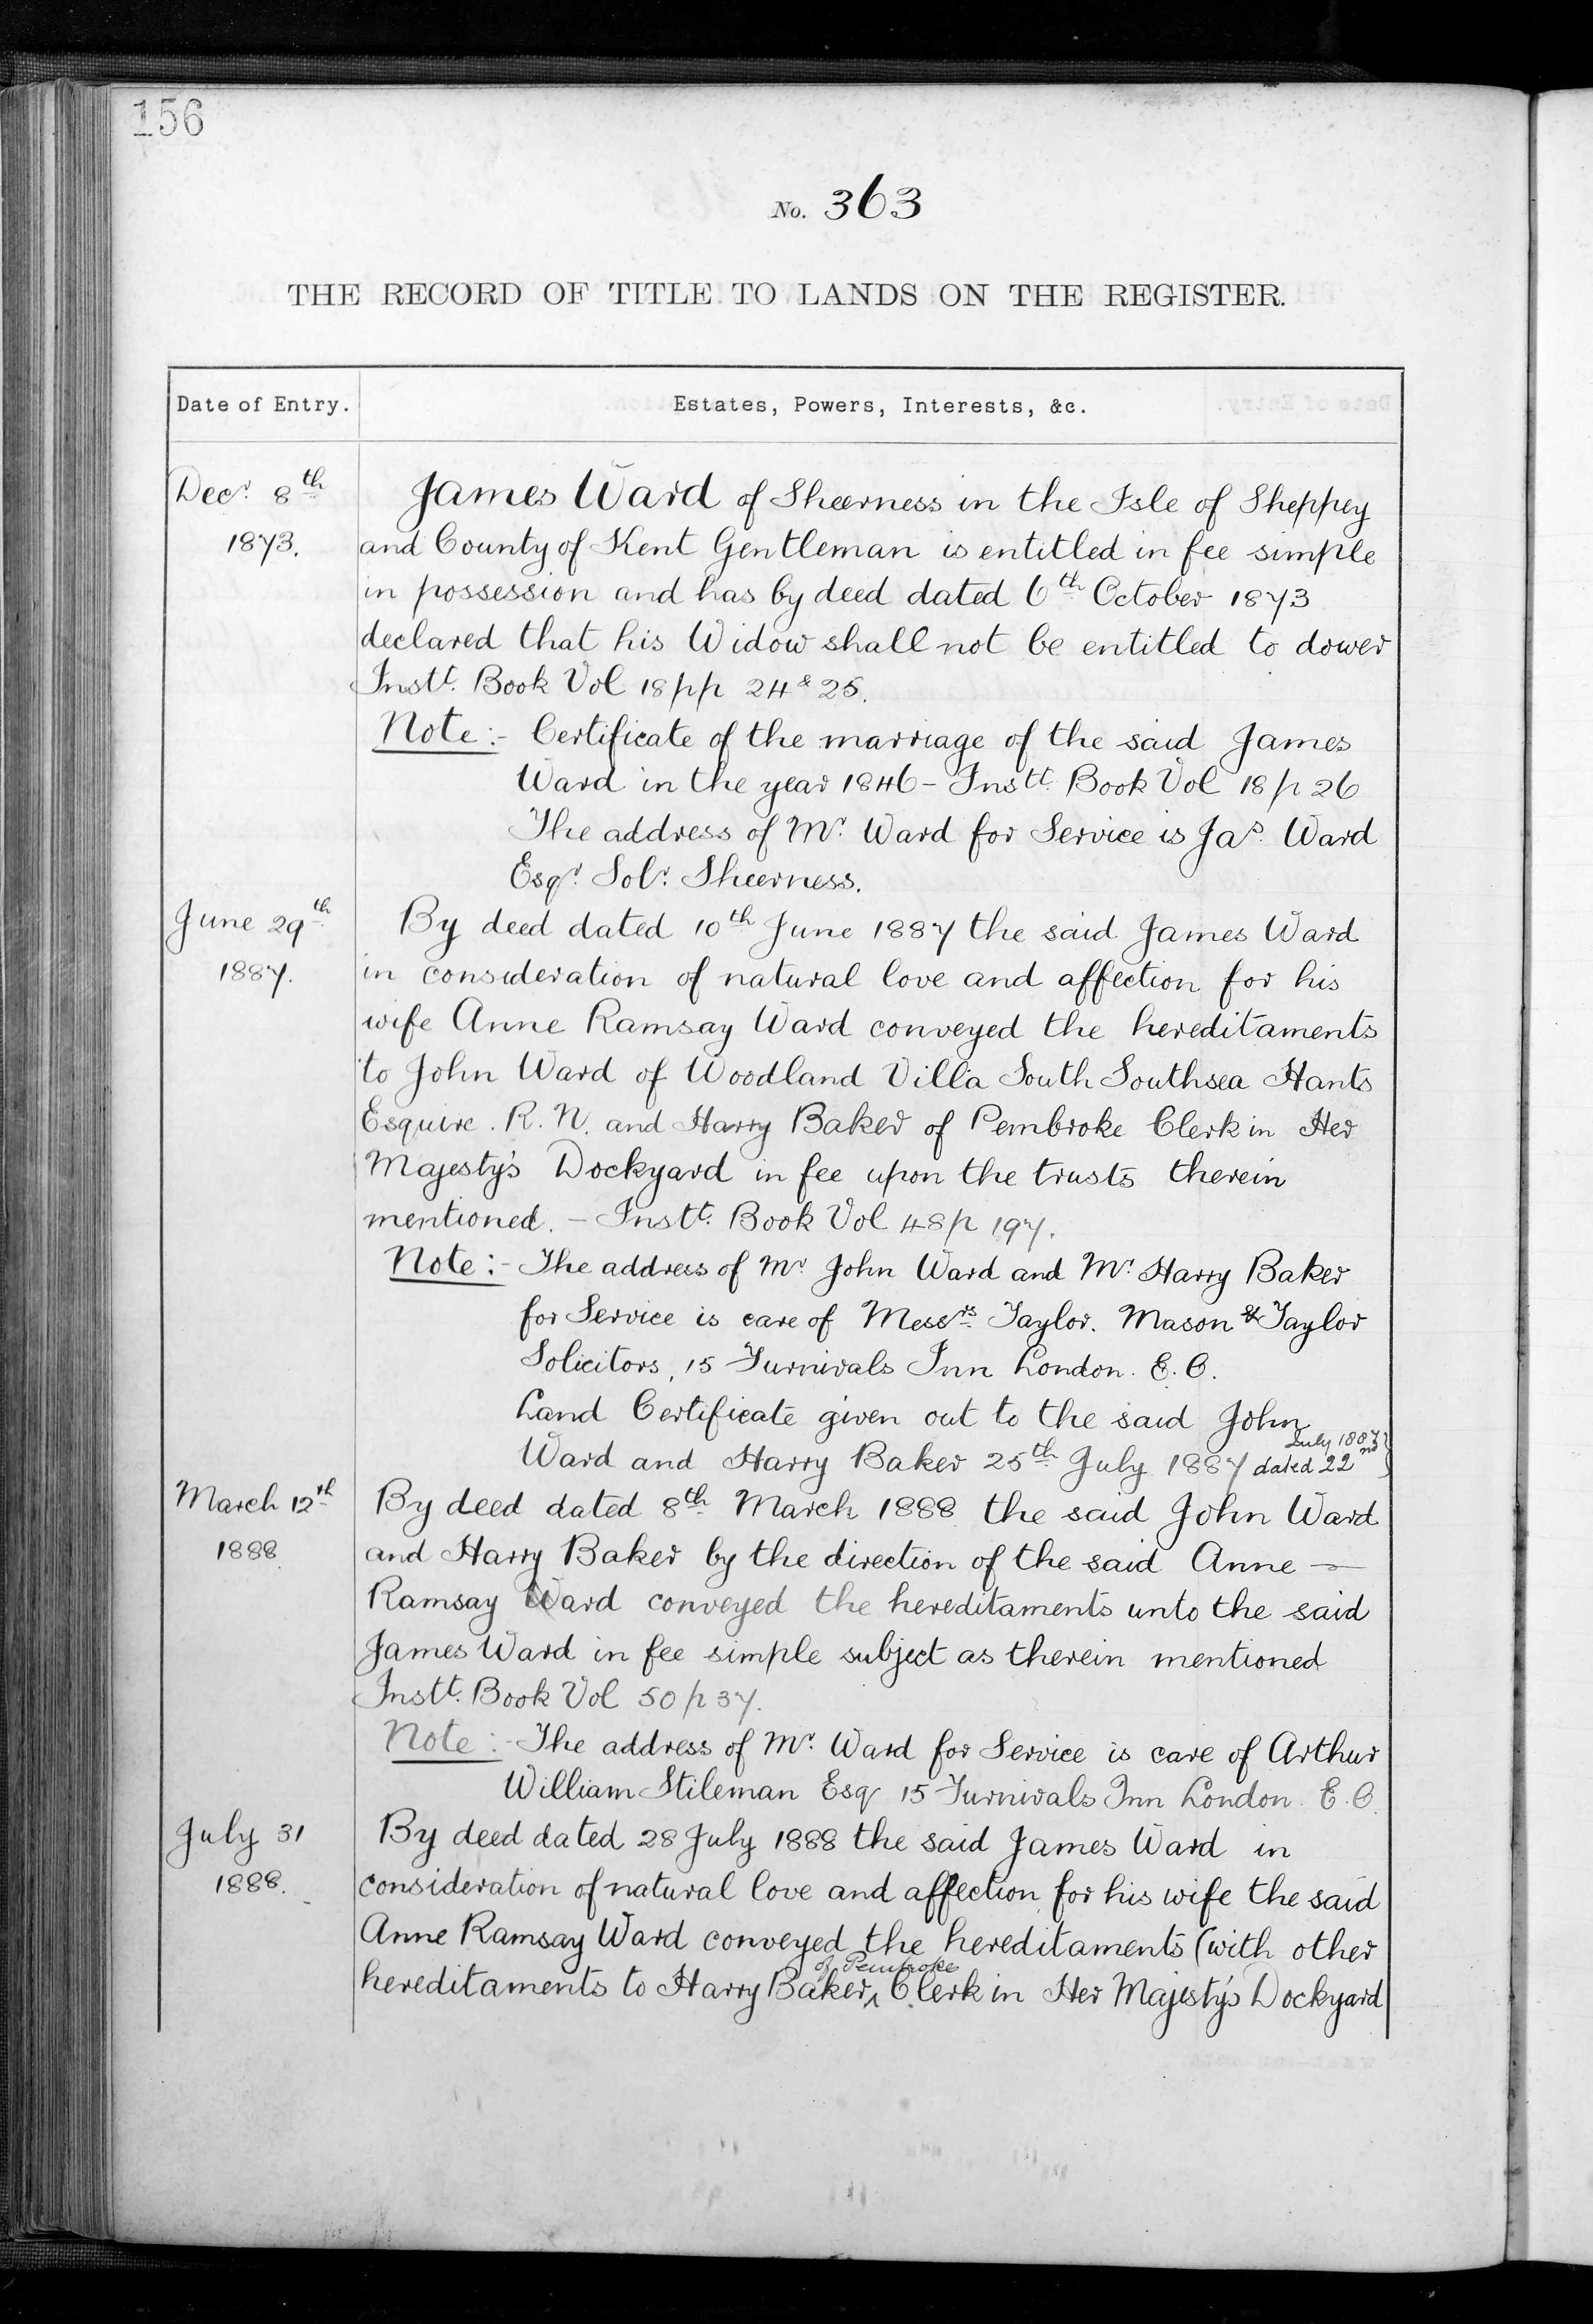 156
No. 363
THE RECORD OF TITLE TO LANDS ON THE REGISTER.
Date of Entry.
Estates, Powers, Interests, &c.
Decr. 8th
1873.
James Ward of Sheerness in the Isle of Sheppey
and County of Kent Gentleman is entitled in fee simple
in possession and has by deed dated 6th October 1873
declared that his Widow shall not be entitled to dower
Instt. Book Vol 18 pp 24 & 25.
Note:- Certificate of the marriage of the said James
Ward in the year 1846 - Instt. Book Vol 18 p 26
The address of Mr. Ward for Service is Jas. Ward
Esqr. Solr. Sheerness.
June 29th
1887.
By deed dated 10th June 1887 the said James Ward
in consideration of natural love and affection for his
wife Anne Ramsay Ward conveyed the hereditaments
to John Ward of Woodland Villa South Southsea Hants
Esquire. R. N. and Harry Baker of Pembroke Clerk in Her
Majesty's Dockyard in fee upon the trusts therein
mentioned. - Instt. Book Vol 48 p 197.
Note:- The address of Mr John Ward and Mr. Harry Baker
for Service is care of Messrs. Taylor. Mason & Taylor
Solicitors, 15 Furnivals Inn London. E. C.
Land Certificate given out to the said John
Ward and Harry Baker 25th July 1887 dated 22nd
July 1887
March 12th
1888
By deed dated 8th March 1888 the said John Ward
and Harry Baker by the direction of the said Anne —
Ramsay Ward conveyed the hereditaments unto the said
James Ward in fee simple subject as therein mentioned
Instt. Book Vol 50 p 37.
Note:- The address of Mr. Ward for Service is care of Arthur
William Stileman Esq 15 Furnivals Inn London. E. C.
July 31
1888.
By deed dated 28 July 1888 the said James Ward in
consideration of natural love and affection for his wife the said
Anne Ramsay Ward conveyed the hereditaments (with other
of Pembroke
hereditaments to Harry Baker, ^ Clerk in Her Majesty's Dockyard